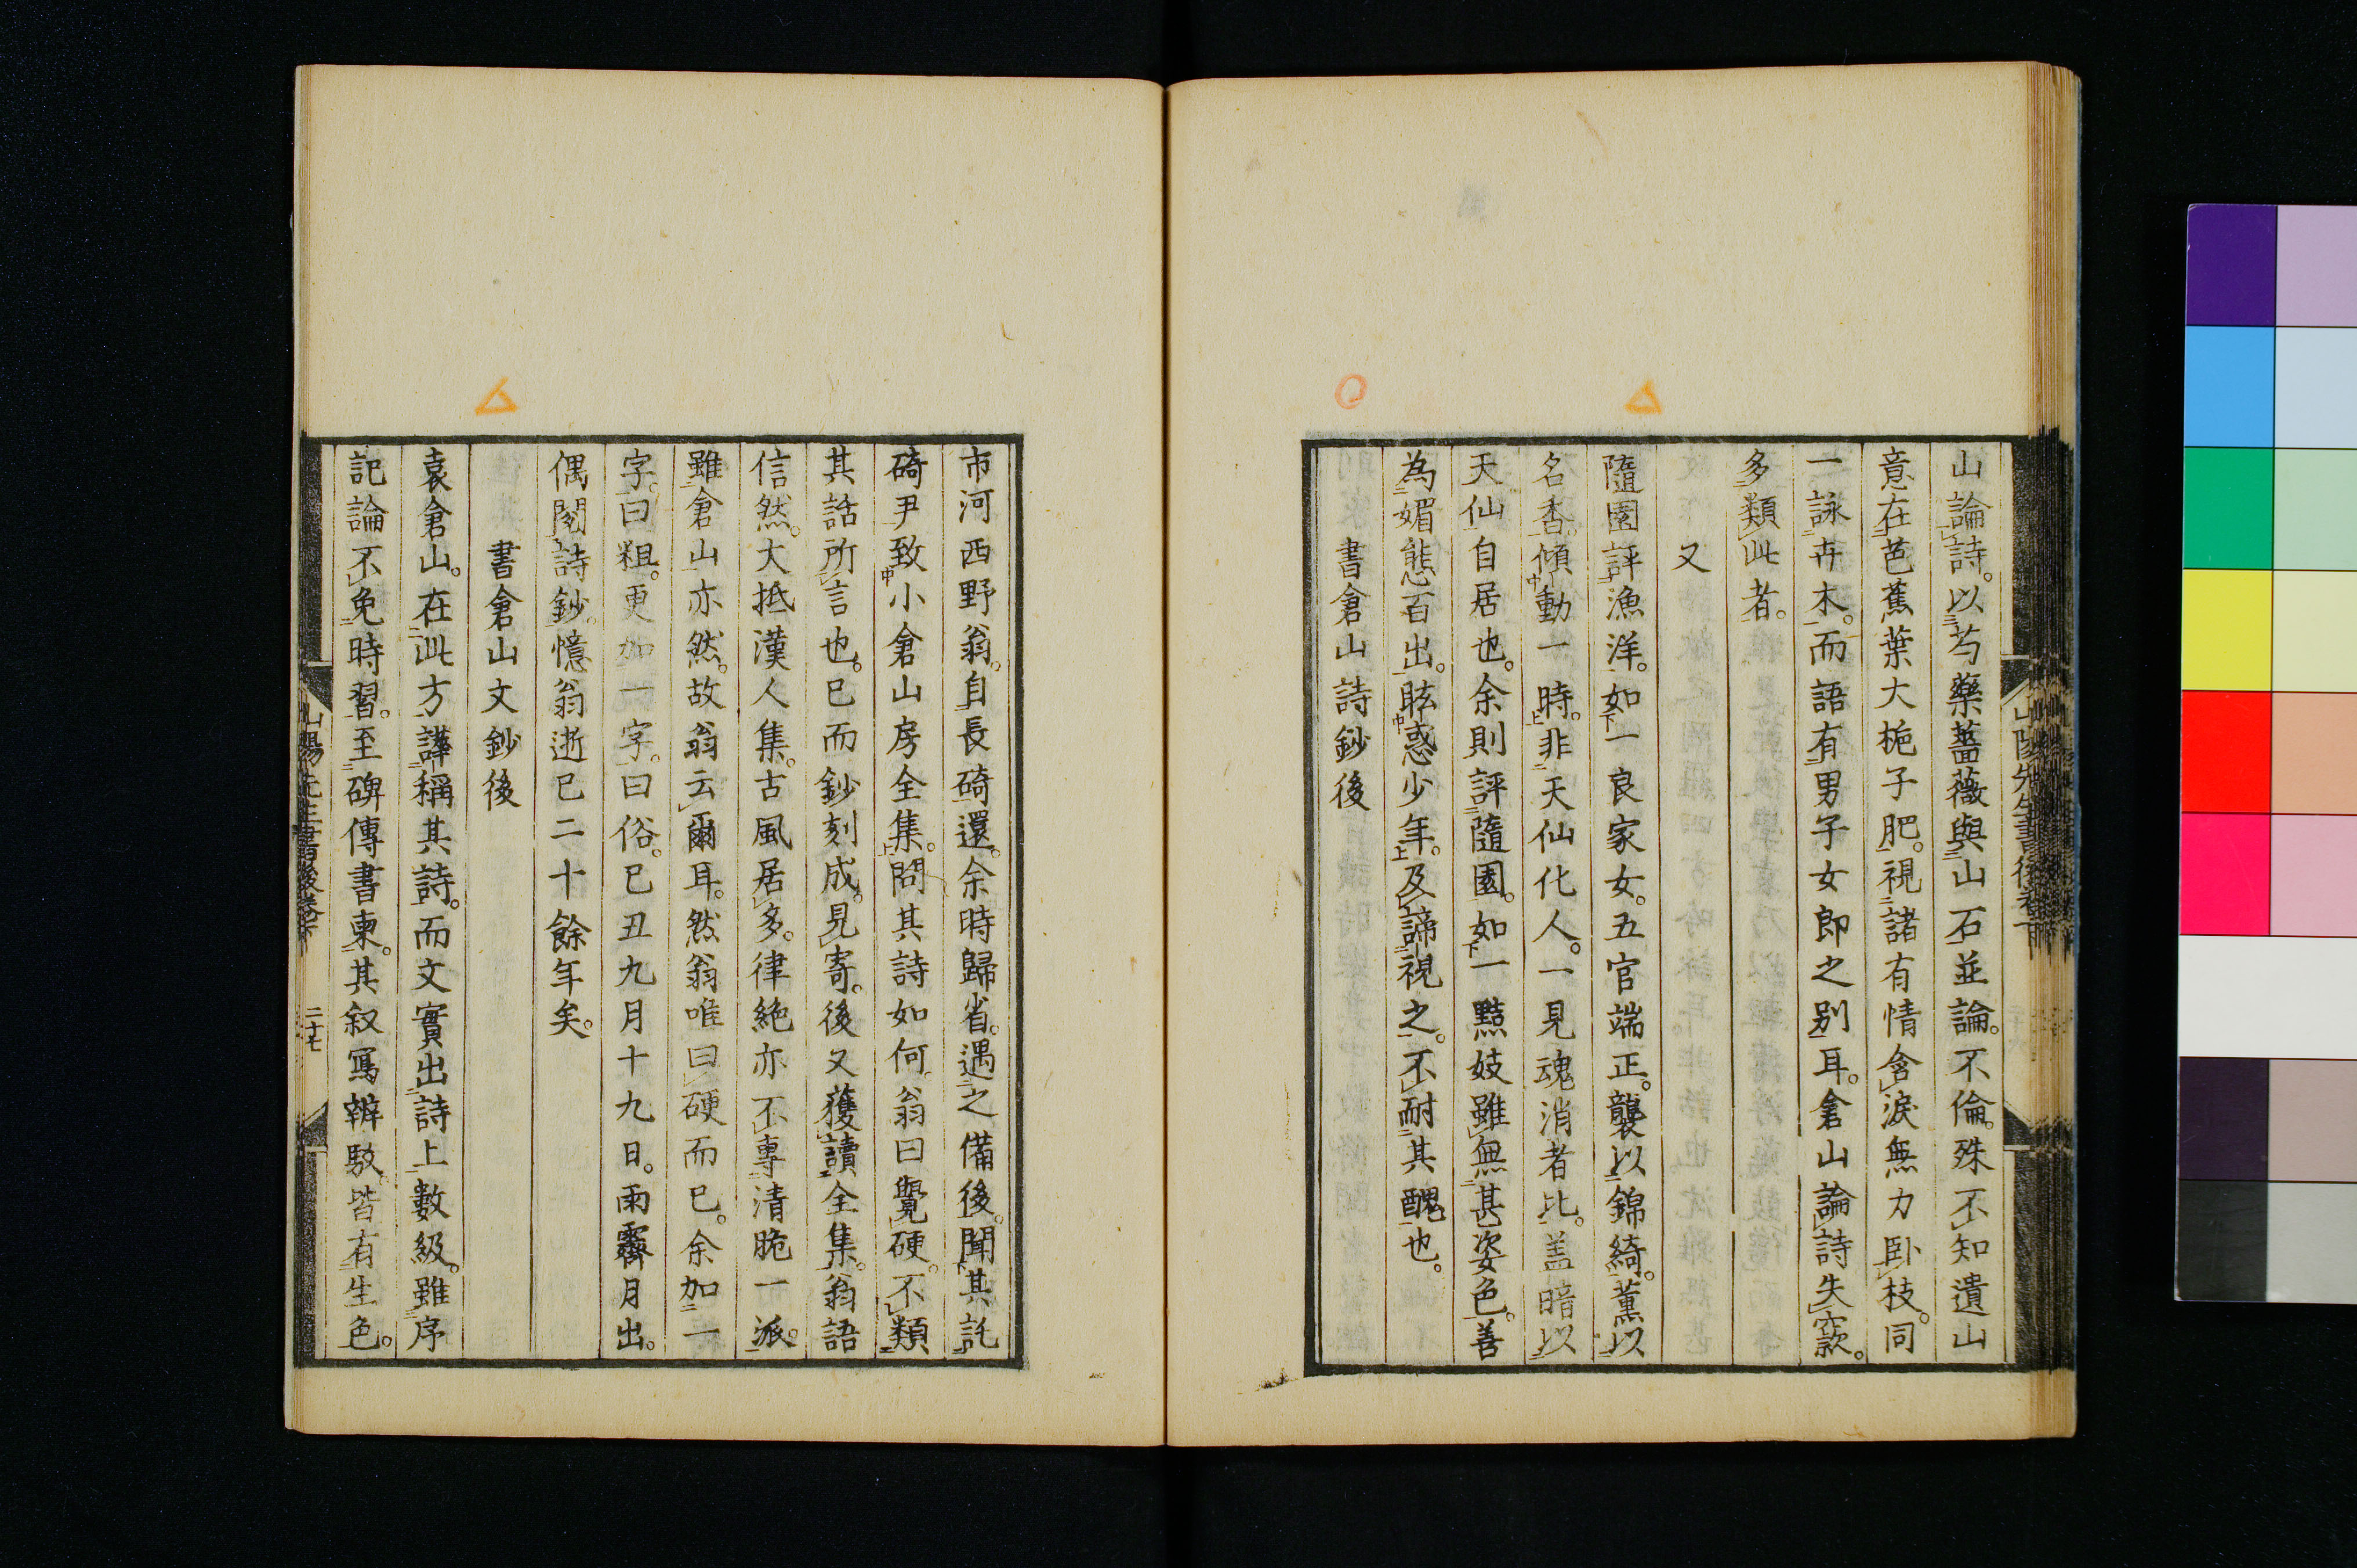 山論詩。以芍藥薔薇與山石並論。不倫。殊不知遺山
意在芭蕉葉大梔子肥。視諸有情含淚無力臥枝。同
一詠卉木。而語有男子女郎之别耳。倉山論詩失窾。
多類此者。
又
隨園評漁洋。如一良家女。五官端正。襲以錦綺。薰以
名香。傾動一時。非天仙化人。一見魂消者比。盖暗以
天仙自居也。余則評隨園。如一黠妓雖無甚姿色。善
為媚態百出。眩惑少年。及諦視之。不耐其醜也。
書倉山詩鈔後
市河西野翁。自長碕還。余時歸省。遇之備後。聞其託
碕尹致小倉山房全集。問其詩如何。翁曰。覺硬。不類
其話所言也。已而鈔刻成。見寄。後又獲讀全集。翁語
信然。大抵漢人集。古風居多。律絶亦不專清脆一派。
雖倉山亦然。故翁云爾耳。然翁唯曰硬而已。余加一
字。曰粗。更加一字。曰俗。己丑九月十九日。雨霽月出。
偶閱詩鈔。憶翁逝已二十餘年矣。
書倉山文鈔後
袁倉山。在此方譁稱其詩。而文實出詩上數級。雖序
記論不免時習。至碑傳書柬。其叙寫辨駁。皆有生色。
山陽先生書後卷下
二十七